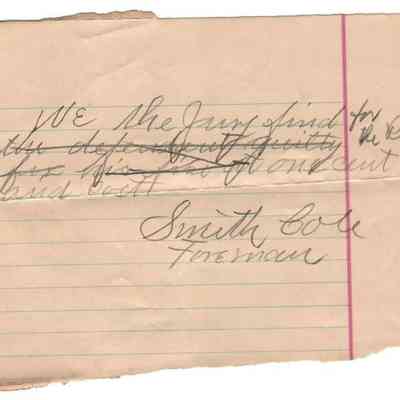 We the Jury find for
the defendent guilty the
fix his fine at one cent
and cost
Smith Cole
Foreman